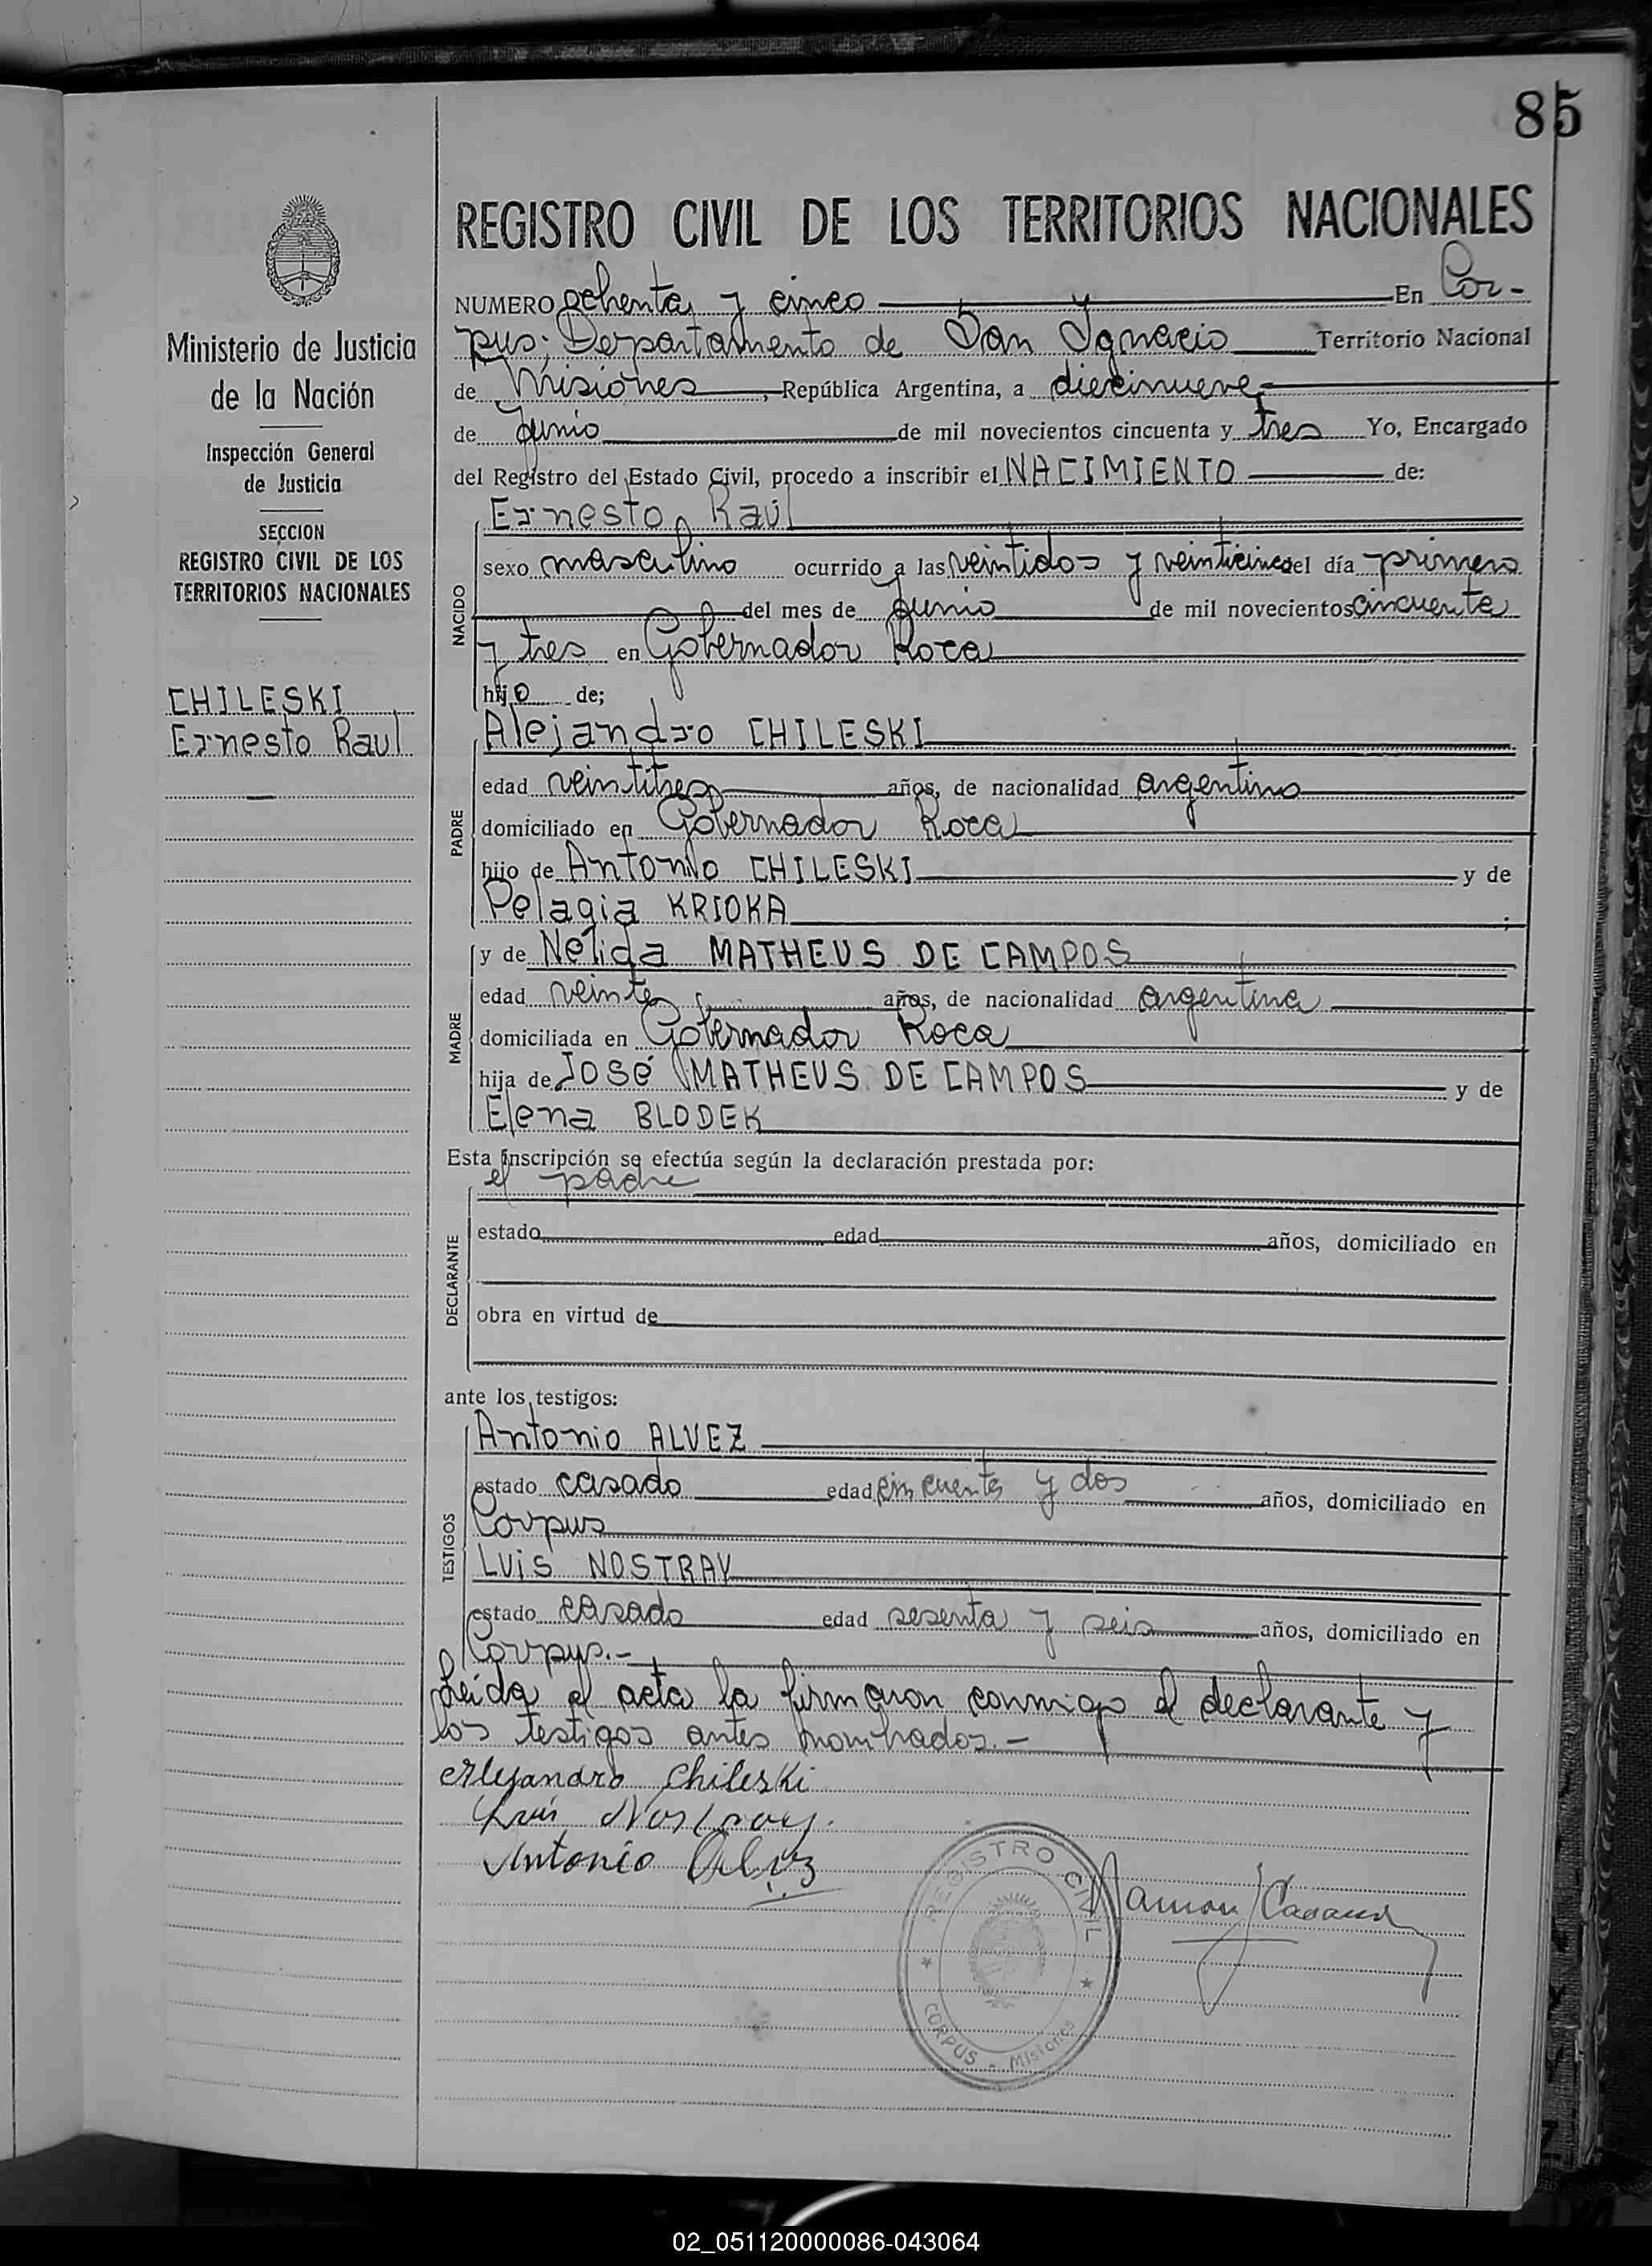 85
Ministerio de Justicia
de la Nación
Inspección General
de Justicia
SECCION
REGISTRO CIVIL DE LOS
TERRITORIOS NACIONALES
CHILESKI
Ernesto Raul
REGISTRO CIVIL DE LOS TERRITORIOS NACIONALES
NUMERO ochenta y cinco En Cor-
pus; Departamento de San Ignacio Territorio Nacional
de Misiones, República Argentina, a diecinueve
de Junio de mil novecientos cincuenta y tres Yo, Encargado
del Registro del Estado Civil, procedo a inscribir el NACIMIENTO de:
NACIDO
Ernesto Raúl
sexo masculino ocurrido a las veintidos y veinticinco del día primero
del mes de Junio de mil novecientos cincuenta
y tres en Gobernador Roca
hijo de;
PADRE
Alejandro CHILESKI
edad veintitres años, de nacionalidad argentino
domiciliado en Gobernador Roca
hijo de Antonio CHILESKI y de
Pelagia KRIOKA;
MADRE
y de Nelida MATHEUS DE CAMPOS
edad veinte años, de nacionalidad argentina
domiciliada en Gobernador Roca
hija de José MATHEUS DE CAMPOS y de
Elena BLODEK
Esta inscripción se efectúa según la declaración prestada por:
DECLARANTE
el padre
estado edad años, domiciliado en
obra en virtud de
ante los testigos:
TESTIGOS
Antonio ALVEZ
estado casado edad cincuenta y dos años, domiciliado en
Corpus
Luis NOSTRAY
estado casado edad sesenta y seis años, domiciliado en
Corpus.-
Leida el acta la firmaron conmigo el declarante y
los testigos antes nombrados.-
Alejandro Chileski
Luis Nostray.
Antonio Alvez
REGISTRO CIVIL
CORPUS - Misiones
Ramon
02_051120000086-043064